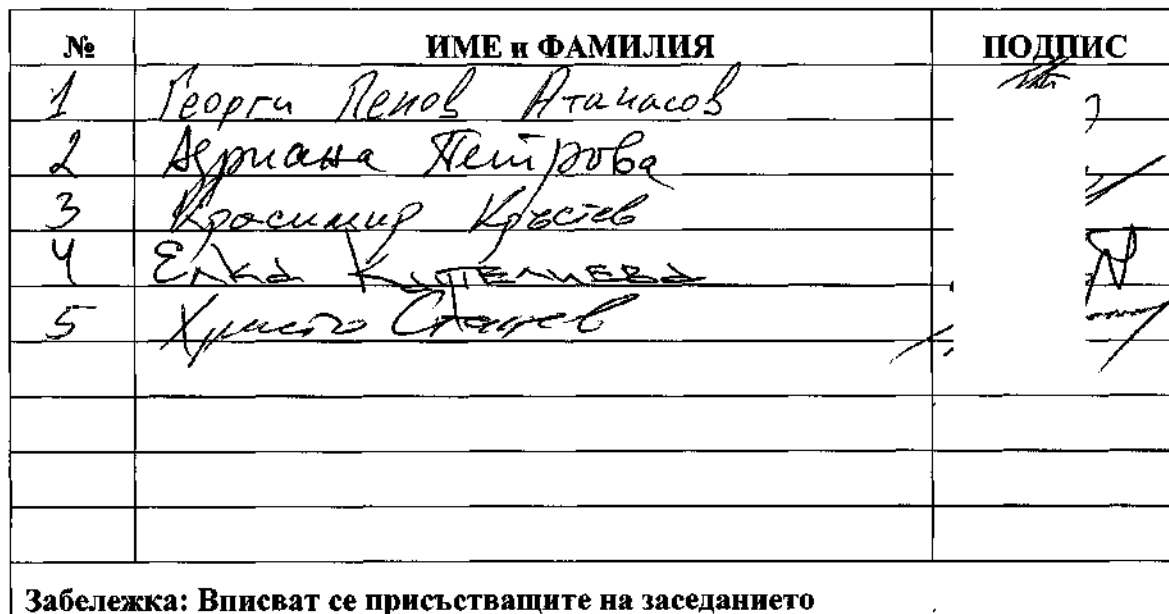 № ИМЕ и ФАМИЛИЯ ПОДПИС
1 Георги Пенов Атанасов
2 Адриана Петрова
3 Красимир Кръстев
4 Елка
5 Христо
Забележка: Вписват се присъстващите на заседанието